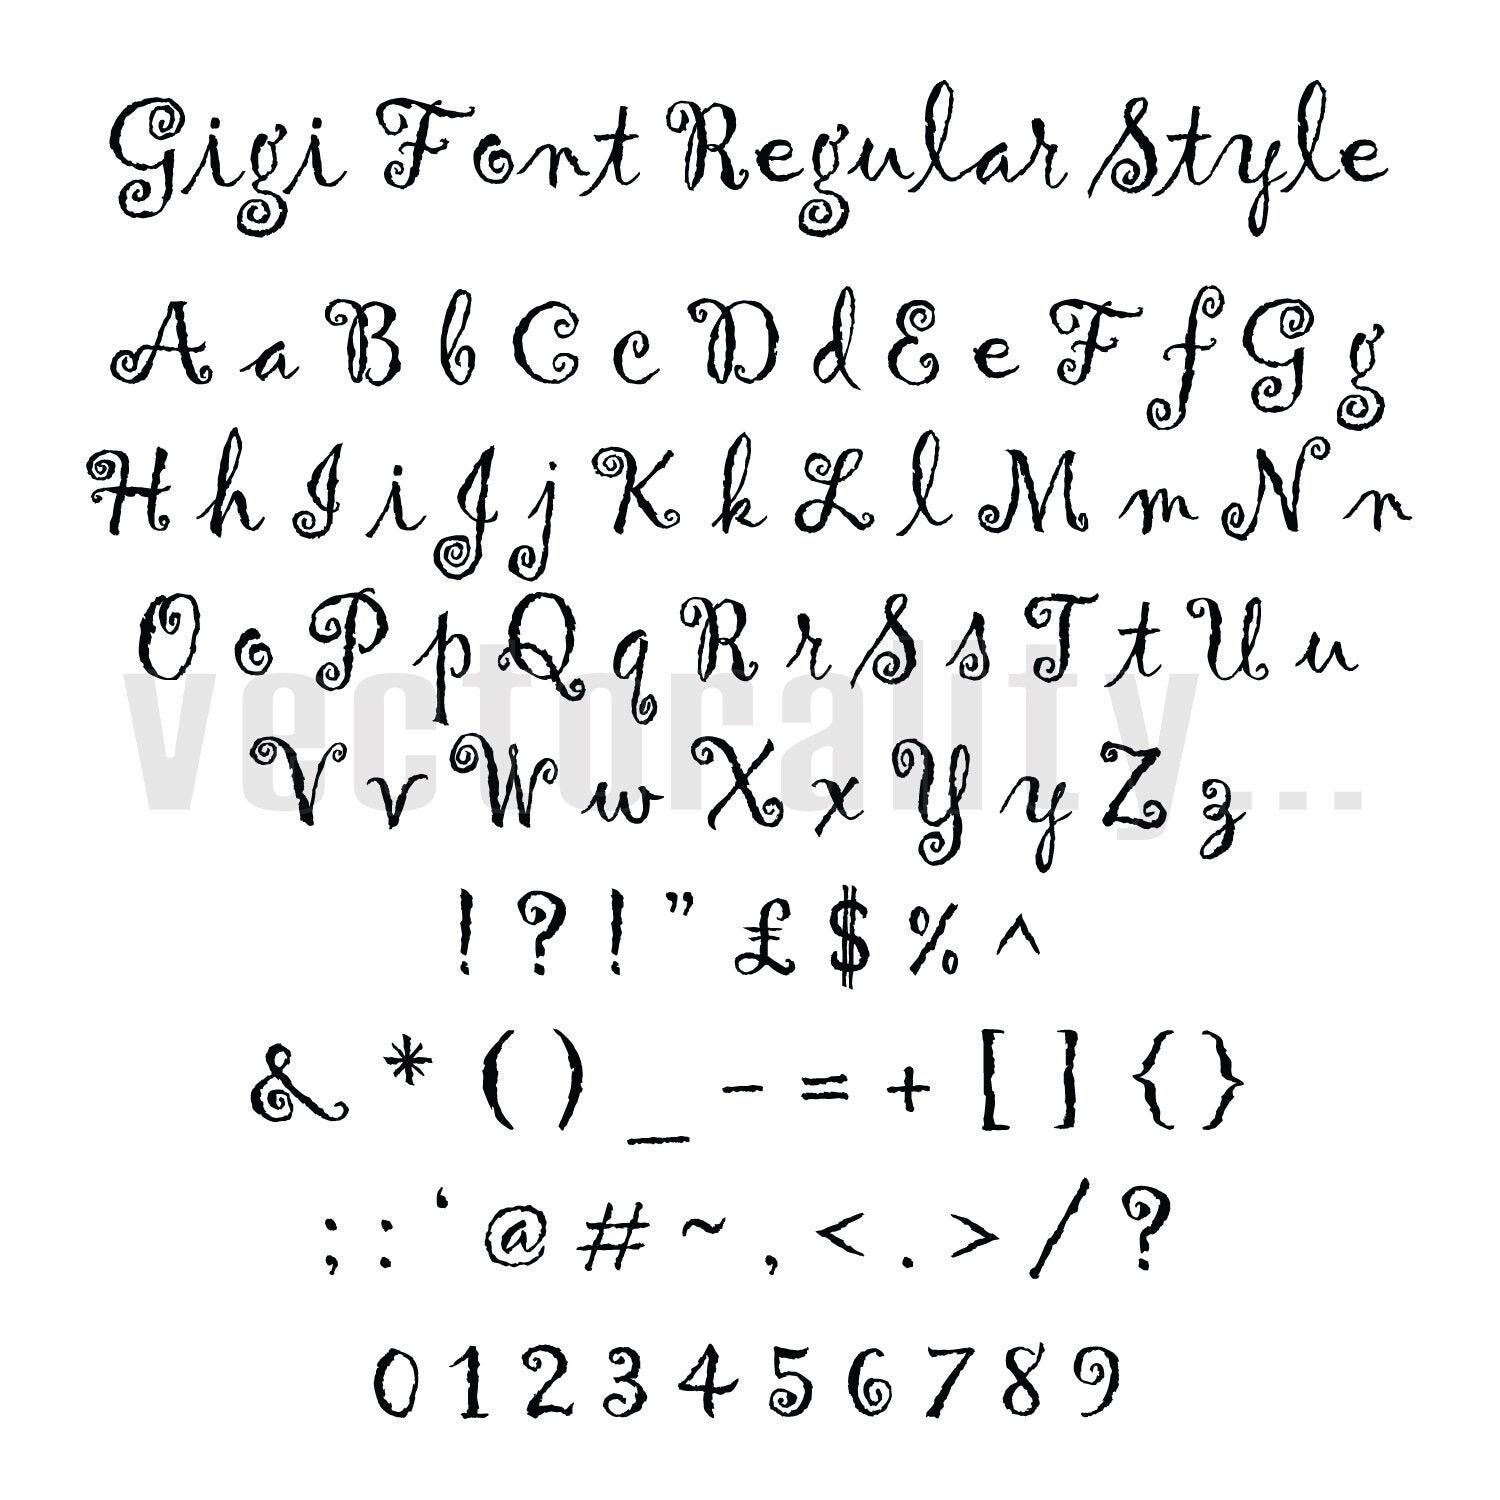 Gigi Font Regular Style
A a B b C c D d E e F f G g
H h I i J j K k L l M m N n
O o P p Q q R r S s T t U u
vectorality...
V v W w X x Y y Z z
! ? ! ” £ $ % ^
& * ( ) _ - = + [ ] { }
; : ‘ @ # ~ , < . > / ?
0 1 2 3 4 5 6 7 8 9